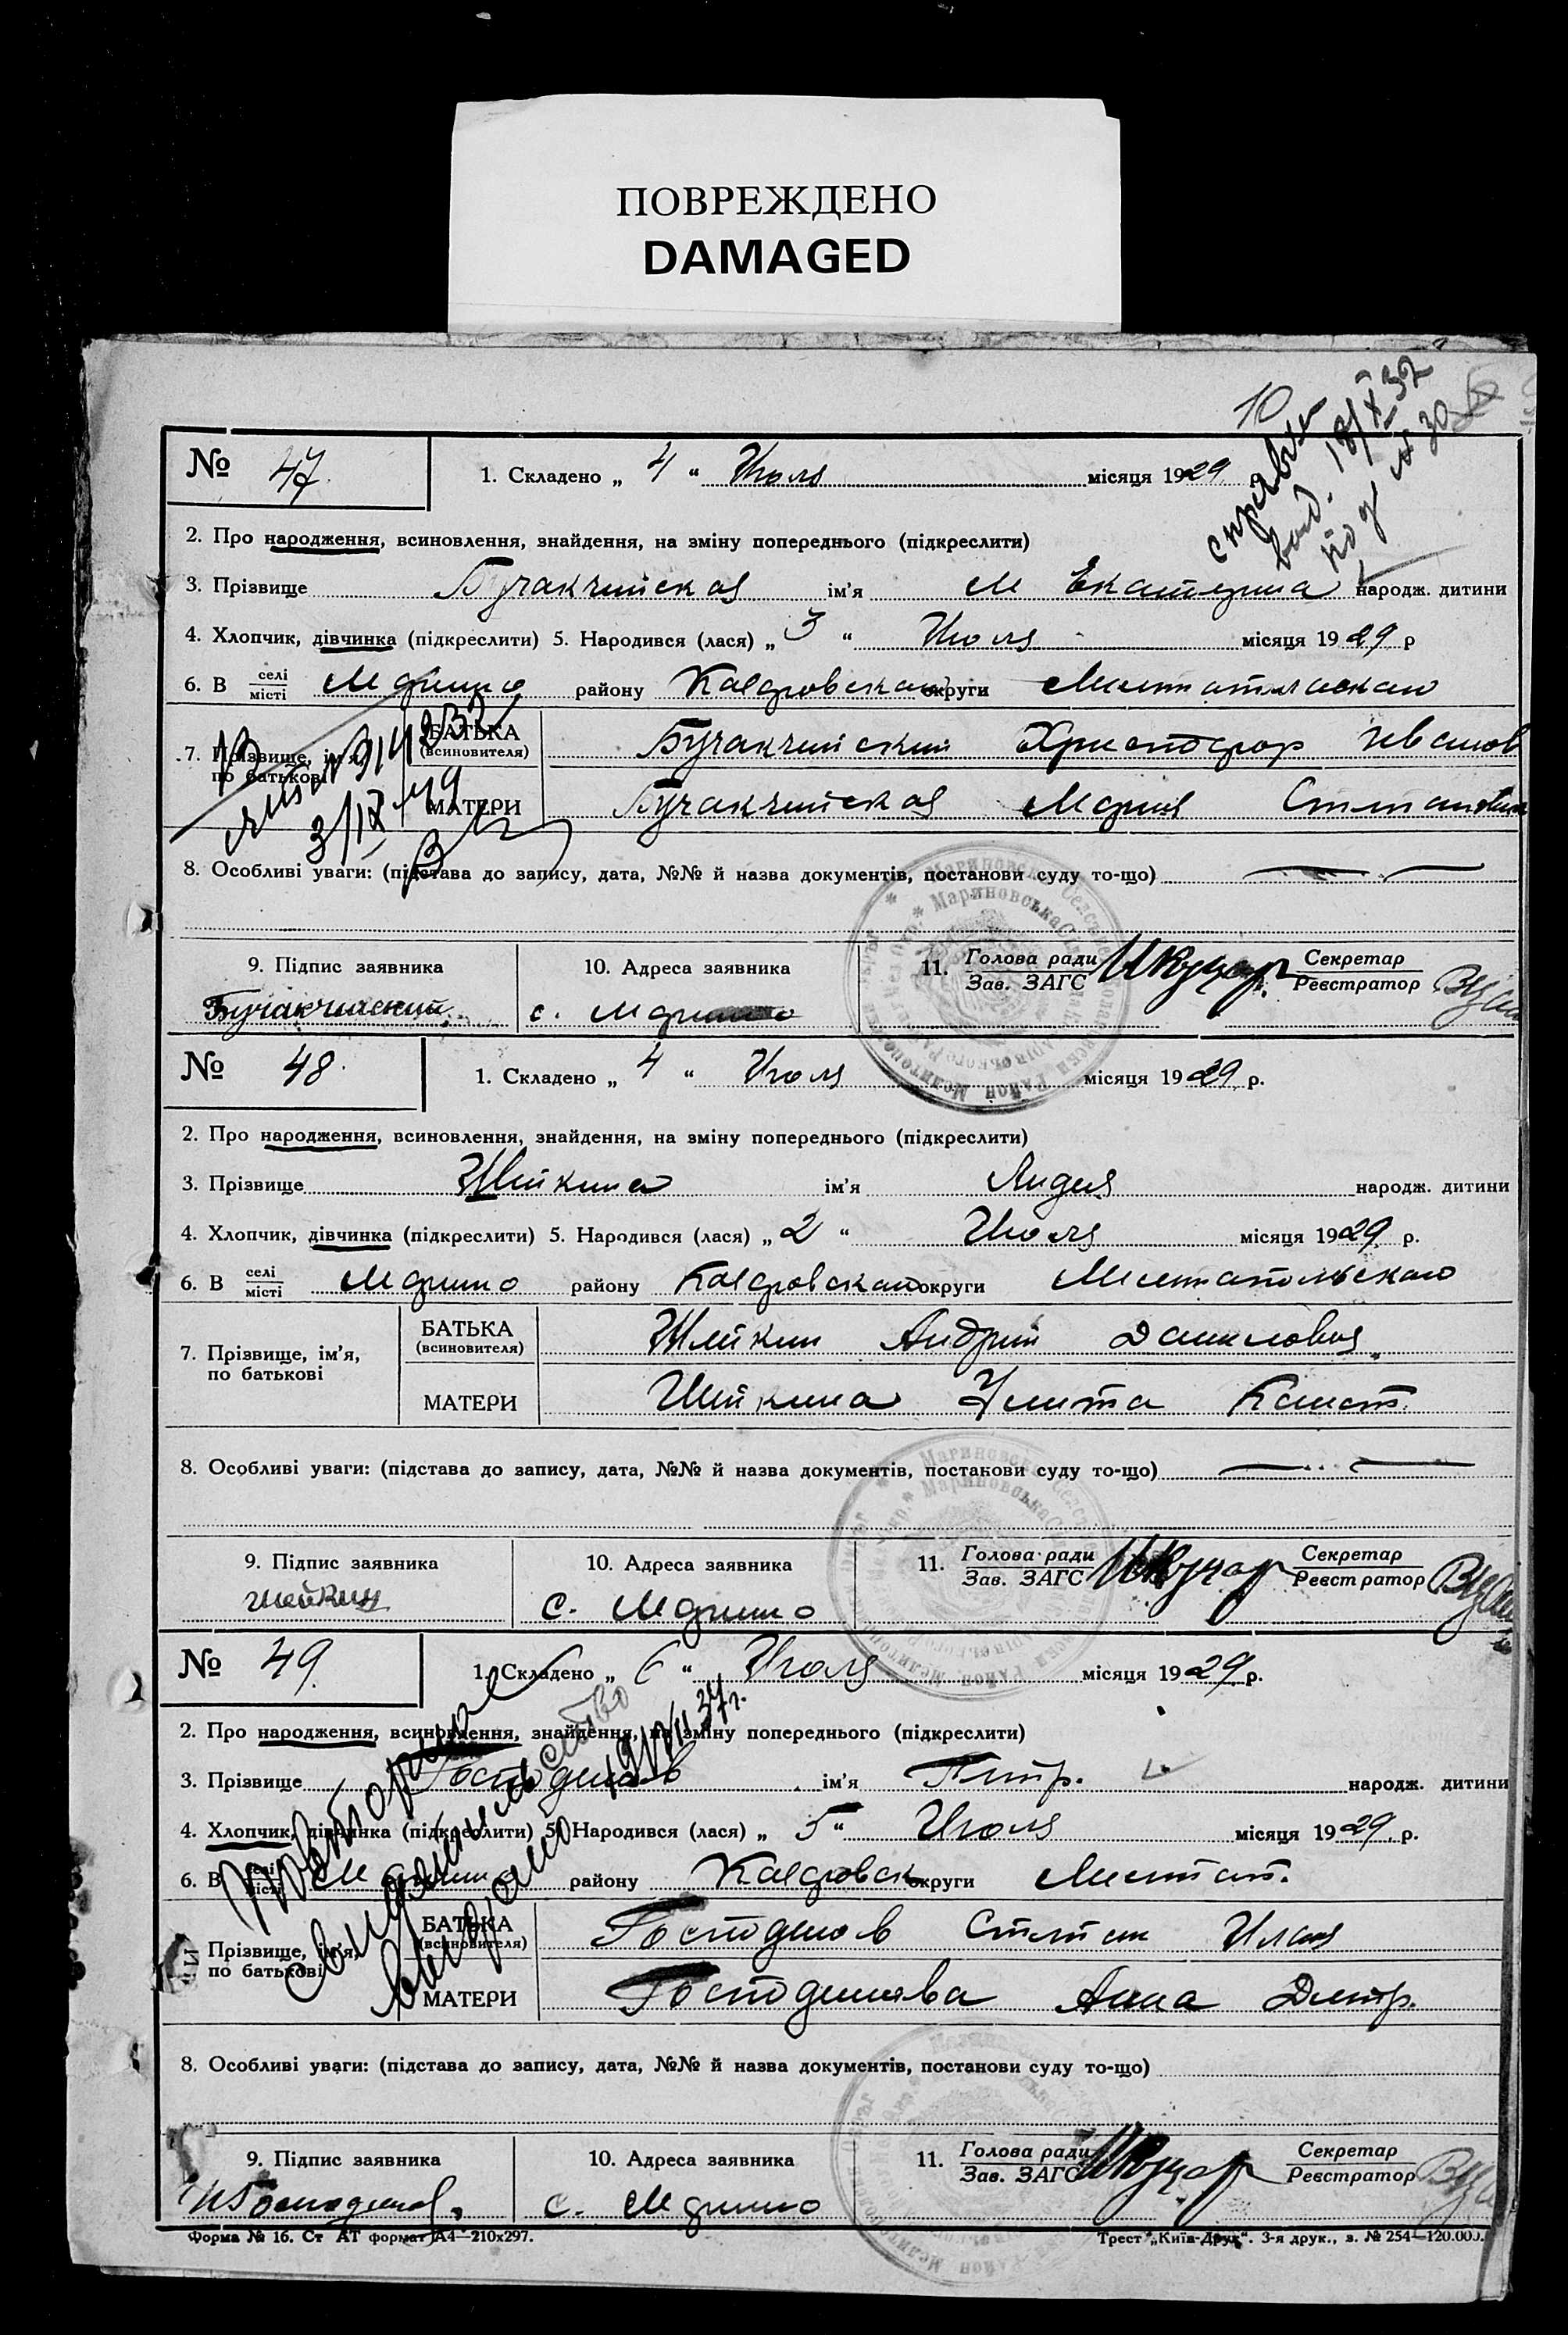 ПОВРЕЖДЕНО
DAMAGED
10
справка
18/X 32
№ 47. 1. Складено „ 4 “ Июля місяця 1929 р.
2. Про народження, всиновлення, знайдення, на зміну попереднього (підкреслити)
3. Прізвище Бучакчийская ім’я Екатерина народж. дитини
4. Хлопчик, дівчинка (підкреслити) 5. Народився (лася) „ 3 “ Июля місяця 1929 р
6. В селі місті району округи
7. Прізвище, ім’я, по батькові
БАТЬКА (всиновителя) Бучакчийский Христофор Иванов
МАТЕРИ Бучакчийская Мария
3/IX 49
8. Особливі уваги: (підстава до запису, дата, №№ й назва документів, постанови суду то-що)
9. Підпис заявника 10. Адреса заявника 11. Голова ради Зав. ЗАГС Секретар Реєстратор
Бучакчийский с.
№ 48. 1. Складено „ 4 “ Июля місяця 1929 р.
2. Про народження, всиновлення, знайдення, на зміну попереднього (підкреслити)
3. Прізвище Шейкина ім’я Лидия народж. дитини
4. Хлопчик, дівчинка (підкреслити) 5. Народився (лася) „ 2 “ Июля місяця 1929 р.
6. В селі місті району округи Мелитопольскаго
7. Прізвище, ім’я, по батькові
БАТЬКА (всиновителя) Шейкин Андрей Данилович
МАТЕРИ Шейкина Улита
8. Особливі уваги: (підстава до запису, дата, №№ й назва документів, постанови суду то-що)
9. Підпис заявника 10. Адреса заявника 11. Голова ради Зав. ЗАГС Секретар Реєстратор
Шейкин с.
№ 49. 1. Складено „ 6 “ Июля місяця 1929 р.
2. Про народження, всиновлення, знайдення, на зміну попереднього (підкреслити)
3. Прізвище Господинов ім’я Петр. народж. дитини
4. Хлопчик, дівчинка (підкреслити) 5. Народився (лася) „ 5 “ Июля місяця 1929 р.
6. В селі місті району округи Мелитоп.
Повторное
свидетельство
выдано 19/VIII 37 г.
Прізвище, ім’я, по батькові
БАТЬКА (всиновителя) Господинов Степан
МАТЕРИ Господинова Анна Дмитр.
8. Особливі уваги: (підстава до запису, дата, №№ й назва документів, постанови суду то-що)
9. Підпис заявника 10. Адреса заявника 11. Голова ради Зав. ЗАГС Секретар Реєстратор
Господинов с.
Форма № 16. Ст АТ формат А4—210х297. Трест „Київ-Друк“. 3-я друк., з. № 254—120.000.